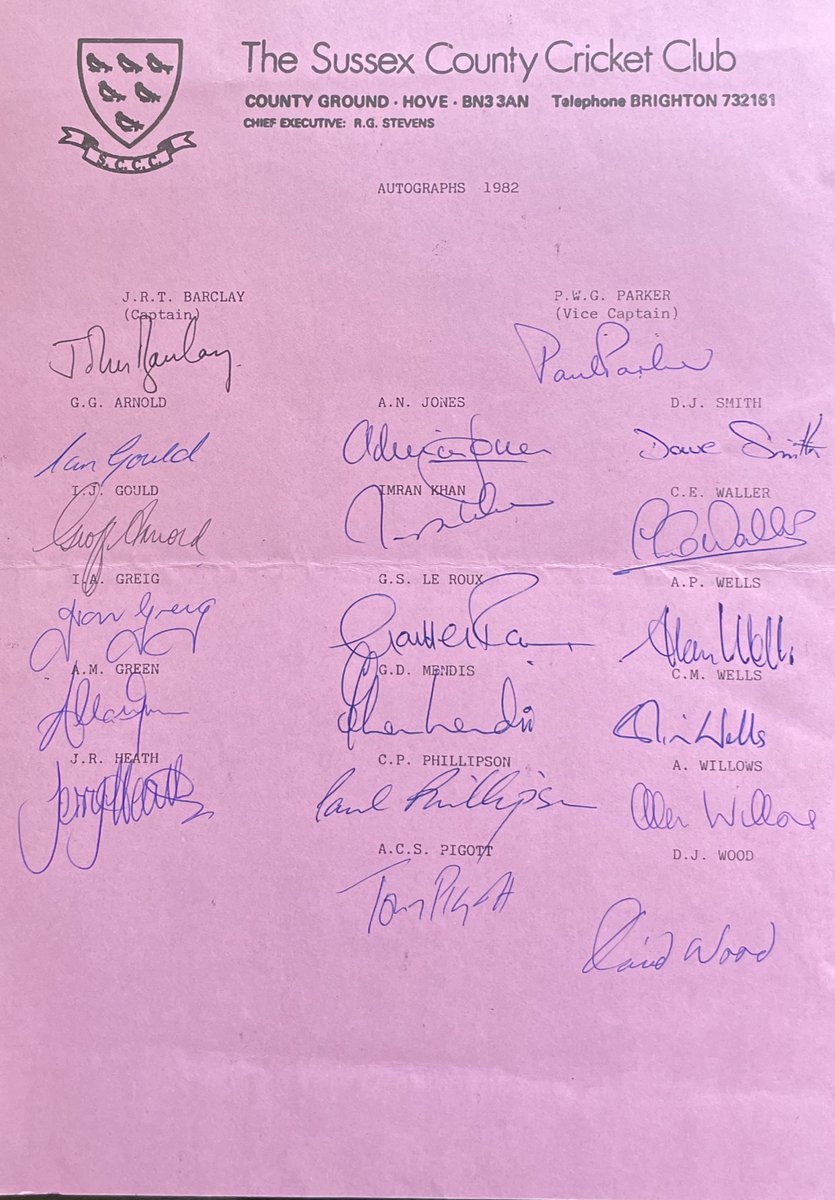 The Sussex County Cricket Club
COUNTY GROUND · HOVE · BN3 3AN Telephone BRIGHTON 732161
CHIEF EXECUTIVE: R.G. STEVENS
S.C.C.C.
AUTOGRAPHS 1982
J.R.T. BARCLAY P.W.G. PARKER
(Captain) (Vice Captain)
John Barclay Paul Parker
G.G. ARNOLD A.N. JONES D.J. SMITH
Ian Gould Adrian Jones Dave Smith
I.J. GOULD IMRAN KHAN C.E. WALLER
Geoff Arnold
I.A. GREIG G.S. LE ROUX A.P. WELLS
Ian Greig Alan Wells
A.M. GREEN G.D. MENDIS C.M. WELLS
Allan Green Colin Wells
J.R. HEATH C.P. PHILLIPSON A. WILLOWS
Jerry Heath Paul Phillipson Alan Willows
A.C.S. PIGOTT D.J. WOOD
Tony Pigott
David Wood